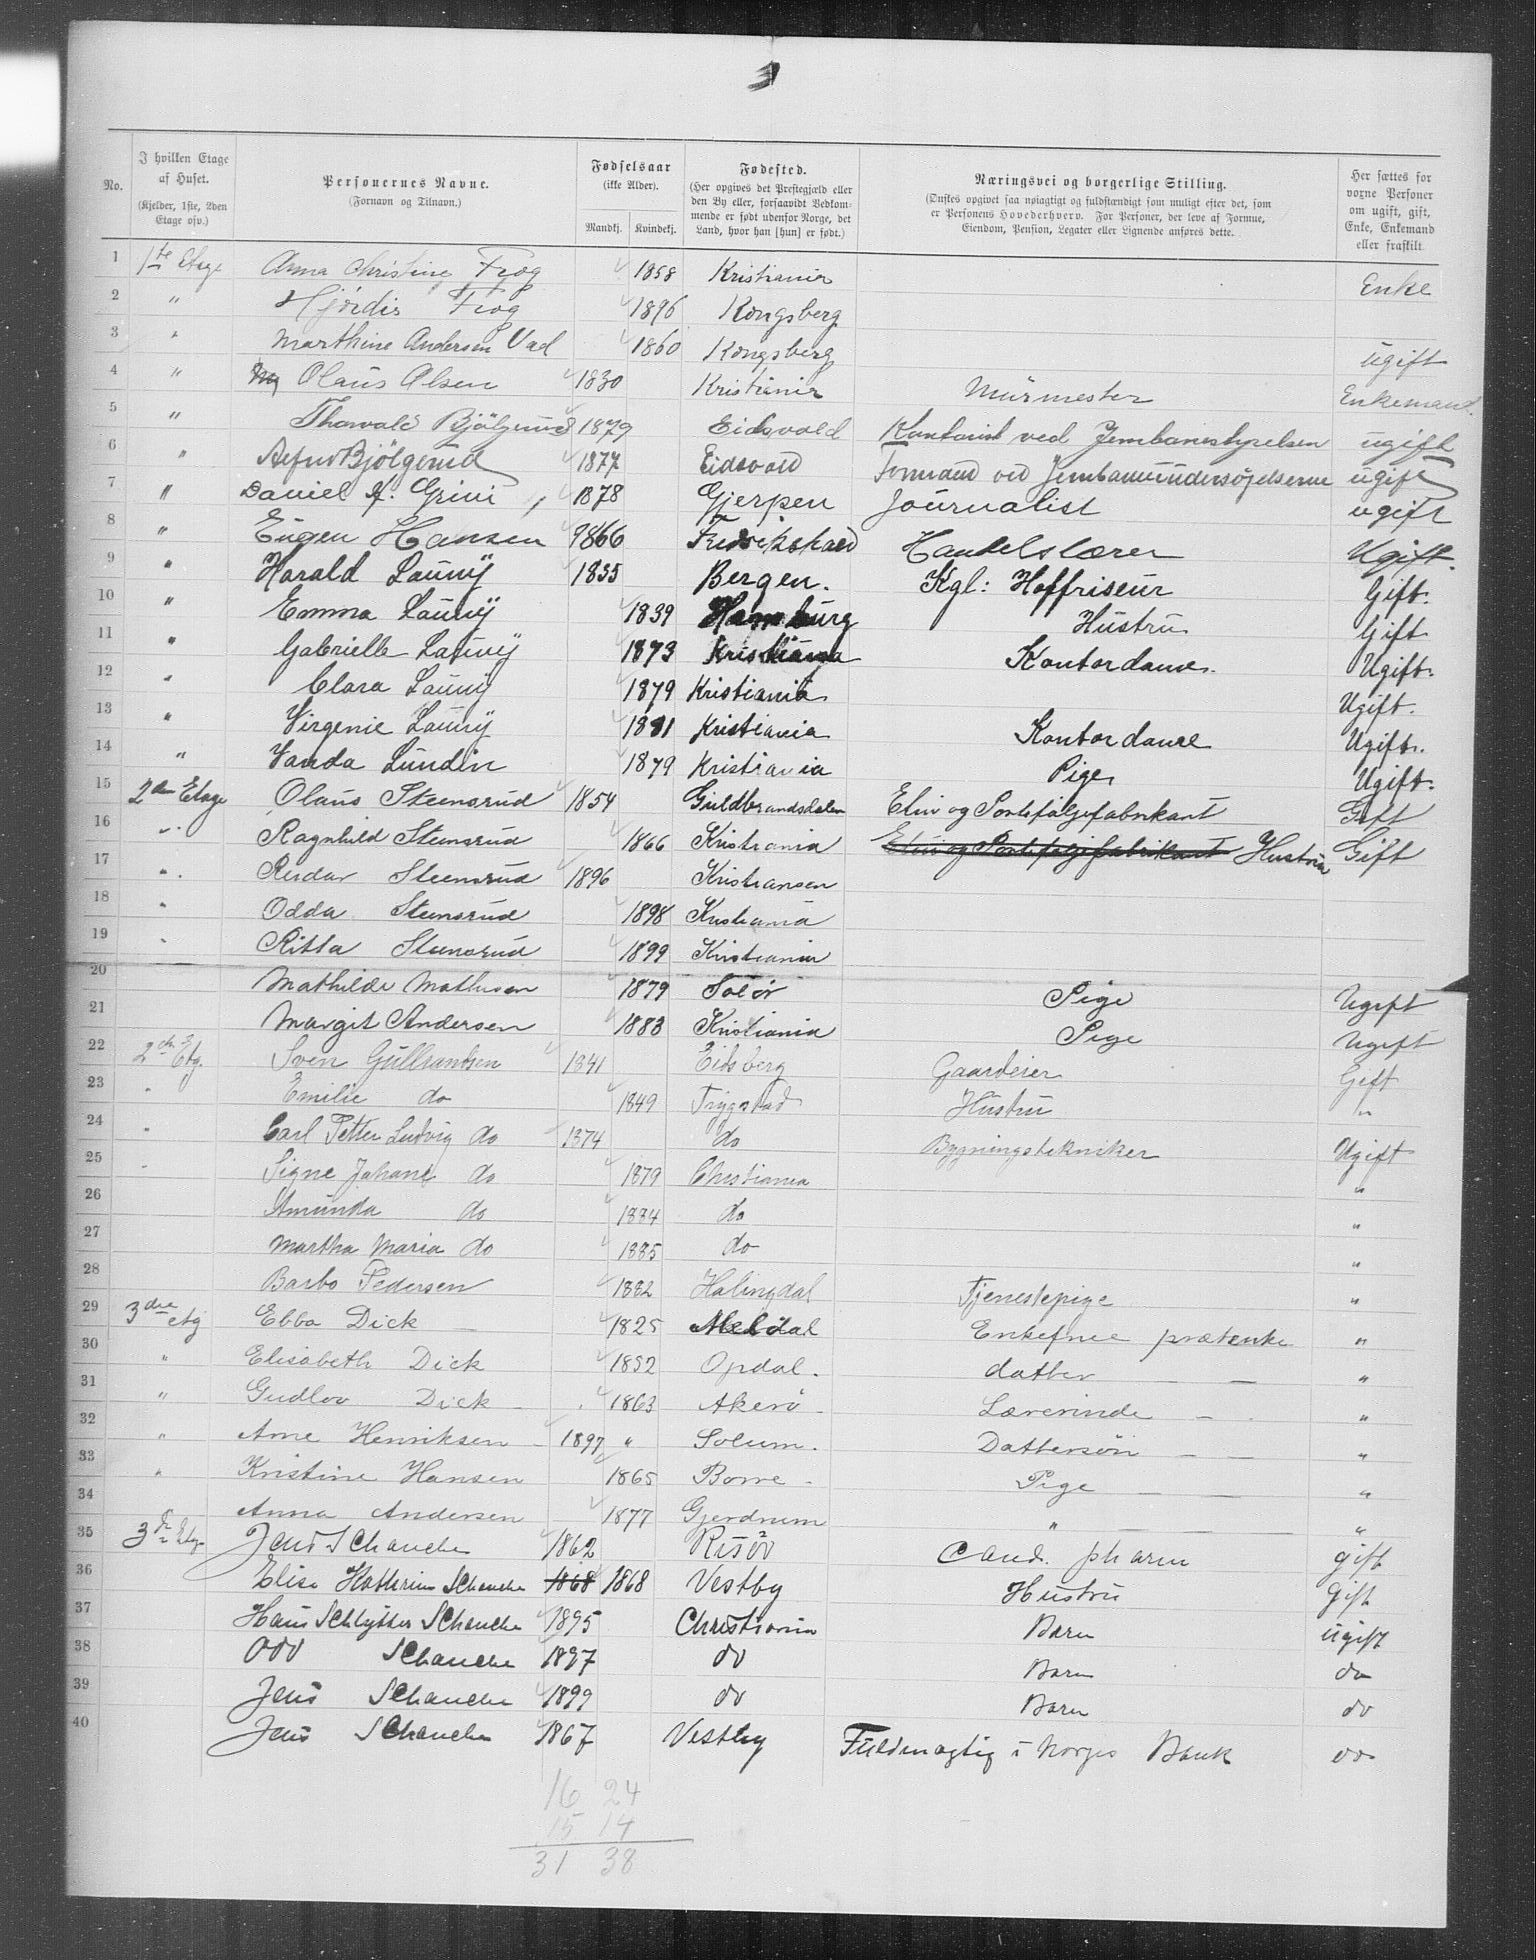 3
No. | I hvilken Etage af Huset. (Kjelder, 1ste, 2den Etage osv.) | Personernes Navne. (Fornavn og Tilnavn.) | Fødselsaar (ikke Alder). Mandkj. Kvindekj. | Fødested. (Her opgives det Prestegjæld eller den By eller, forsaavidt Vedkommende er født udenfor Norge, det Land, hvor han [hun] er født.) | Næringsvei og borgerlige Stilling. (Ønskes opgivet saa nøiagtigt og fuldstændigt som muligt efter det, som er Personens Hovederhverv. For Personer, der leve af Formue, Eiendom, Pension, Legater eller Lignende anføres dette.) | Her sættes for voxne Personer om ugift, gift, Enke, Enkemand eller fraskilt.
1 1te Etage Anna Christine Frog 1858 Kristiania Enke
2 " Hjördis Frog 1896 Kongsberg
3 " Marthine Andersen Vad 1860 Kongsberg ugift
4 " Olaus Olsen 1830 Kristiania Murmester Enkemand.
5 " Thorvald Bjölgerud 1879 Eidsvold Kontorist ved Jernbanestyrelsen ugift
6 " Bjölgerud 1877 Eidsvold Formand ved Jernbaneundersøgelserne ugift
7 " Daniel A. Grini 1878 Gjerpen Journalist ugift
8 " Eugen Hansen 1866 Fredrikshald Handelslærer Ugift.
9 " Harald Launÿ 1835 Bergen. Kgl: Hoffriseur Gift.
10 " Emma Launÿ 1839 Hamburg Hustru Gift
11 " Gabrielle Launÿ 1873 Kristiania Kontordame. Ugift.
12 " Clara Launÿ 1879 Kristiania Ugift.
13 " Virgenie Launÿ 1881 Kristiania Kontordame Ugift.
14 " Vanda Lundin 1879 Kristiania Pige Ugift.
15 2den Etage Olaus Steensrud 1854 Guldbrandsdalen Etui og Porteføljefabrikant Gift
16 " Ragnhild Steensrud 1866 Kristiania Etui og Porteføljefabrikant Hustru Gift
17 " Reidar Steensrud 1896 Kristiansen
18 " Odda Steensrud 1898 Kristiania
19 " Ritta Steensrud 1899 Kristiania
20 Mathilde Mathisen 1879 Solør Pige Ugift
21 Margit Andersen 1883 Kristiania Pige Ugift
22 2den Etg. Sven Gullrandsen 1841 Eidsberg Gaardeier Gift
23 " Emilie do 1849 Trygstad Hustru "
24 " Carl Petter Ludvig do 1874 do Bygningstekniker Ugift
25 " Signe Johane do 1879 Christiania "
26 Amunda do 1884 do "
27 Martha Maria do 1885 do "
28 Barbo Pedersen 1882 Halingdal Tjenestepige "
29 3die etg Ebba Dick 1825 Meldal Enkefrue "
30 " Elisabeth Dick 1852 Opdal. datter "
31 " Gudlov Dick 1863 Akerö Lærerinde "
32 " Arne Henriksen 1897 " Solum. Dattersön "
33 " Kristine Hansen 1865 Borre Pige "
34 Anna Andersen 1877 Gjerdrum " "
35 3die Etg Jens Schanche 1862 Risör Cand. pharm gift
36 Elise Kathrine Schanche 1868 1868 Vestby Hustru gift
37 Hans Schlytter Schanche 1895 Christiania Barn ugift
38 Odd Schanche 1897 do Barn do
39 Jens Schanche 1899 do Barn do
40 Jens Schanche 1867 Vestby Fuldmægtig i Norges Bank do
16 24
15 14
31 38